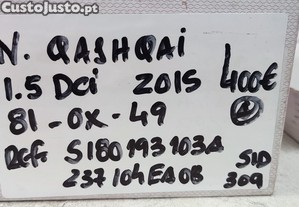 CustoJusto.pt
N. QASHQAi
1.5 DCi 2015 400€
81-OX-49 A
REF: S180193103A
237104EA0B SID
309